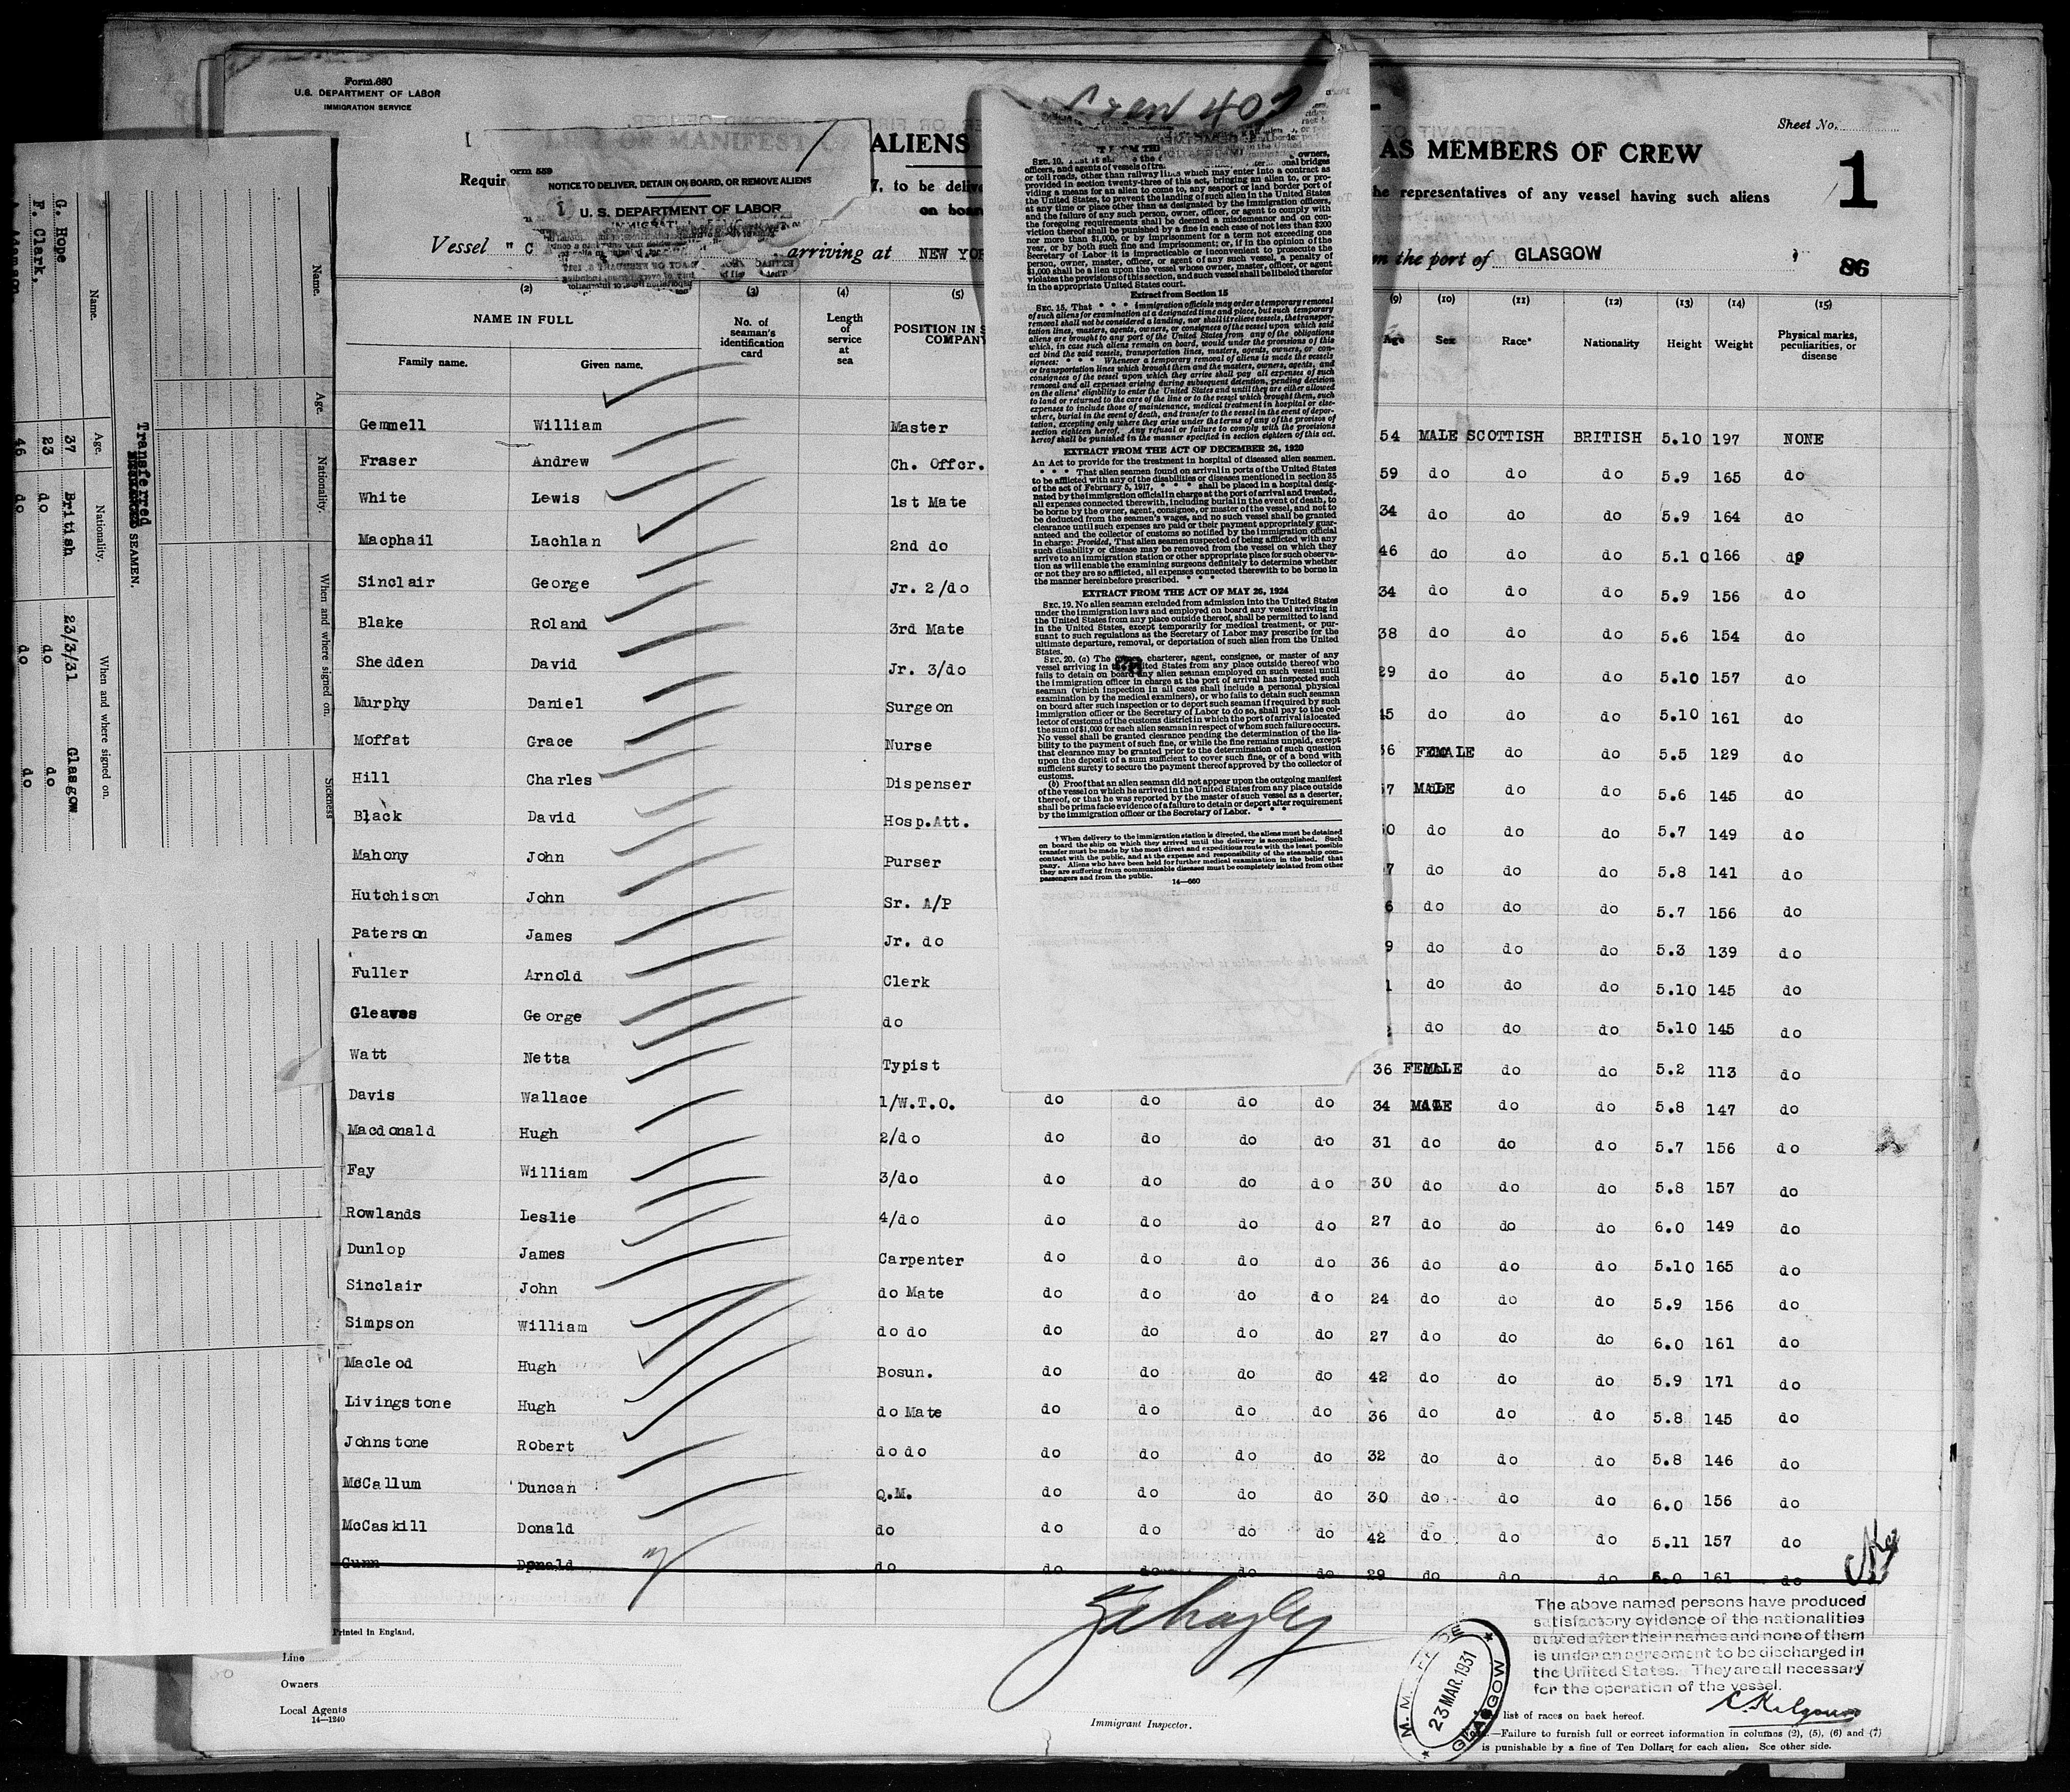 Form 680
U.S. DEPARTMENT OF LABOR
IMMIGRATION SERVICE
Crew 407
Sheet No.
LIST OR MANIFEST OF ALIENS AS MEMBERS OF CREW
1
Requir 7, to be delive he representatives of any vessel having such aliens
on boar
orm 559
NOTICE TO DELIVER, DETAIN ON BOARD, OR REMOVE ALIENS
U. S. DEPARTMENT OF LABOR
Vessel " C arriving at NEW YOR m the port of GLASGOW
86
(2) (3) (4) (5) (9) (10) (11) (12) (13) (14) (15)
NAME IN FULL
Family name. Given name.
No. of seaman's identification card
Length of service at sea
POSITION IN S
COMPANY
Age Sex Race* Nationality Height Weight Physical marks, peculiarities, or disease
Gemmell William Master 54 MALE SCOTTISH BRITISH 5.10 197 NONE
Fraser Andrew Ch. Offcr. 59 do do do 5.9 165 do
White Lewis 1st Mate 34 do do do 5.9 164 do
Macphail Lachlan 2nd do 46 do do do 5.1 0 166 do
Sinclair George Jr. 2/do 34 do do do 5.9 156 do
Blake Roland 3rd Mate 38 do do do 5.6 154 do
Shedden David Jr. 3/do 29 do do do 5.10 157 do
Murphy Daniel Surgeon 45 do do do 5.10 161 do
Moffat Grace Nurse 36 FEMALE do do 5.5 129 do
Hill Charles Dispenser 7 MALE do do 5.6 145 do
Black David Hosp.Att. 0 do do do 5.7 149 do
Mahony John Purser 7 do do do 5.8 141 do
Hutchison John Sr. A/P 6 do do do 5.7 156 do
Paterson James Jr. do 9 do do do 5.3 139 do
Fuller Arnold Clerk 1 do do do 5.10 145 do
Gleaves George do do do do 5.10 145 do
Watt Netta Typist 36 FEMALE do do 5.2 113 do
Davis Wallace 1/W.T.O. do do do do 34 MALE do do 5.8 147 do
Macdonald Hugh 2/do do do do do 31 do do do 5.7 156 do
Fay William 3/do do do do do 30 do do do 5.8 157 do
Rowlands Leslie 4/do do do do do 27 do do do 6.0 149 do
Dunlop James Carpenter do do do do 36 do do do 5.10 165 do
Sinclair John do Mate do do do do 24 do do do 5.9 156 do
Simpson William do do do do do do 27 do do do 6.0 161 do
Macleod Hugh Bosun. do do do do 42 do do do 5.9 171 do
Livingstone Hugh do Mate do do do do 36 do do do 5.8 145 do
Johnstone Robert do do do do do do 32 do do do 5.8 146 do
McCallum Duncan Q.M. do do do do 30 do do do 6.0 156 do
McCaskill Donald do do do do do 42 do do do 5.11 157 do
Gunn Donald do do do do do 29 do do do 6.0 161 do
Printed in England.
Line
Owners
Local Agents
14—1240
Immigrant Inspector.
M.M. OFFICE
23 MAR. 1931
GLASGOW
The above named persons have produced
satisfactory evidence of the nationalities
stated after their names and none of them
is under an agreement to be discharged in
the United States. They are all necessary
for the operation of the vessel.
list of races on back hereof.
—Failure to furnish full or correct information in columns (2), (5), (6) and (7)
is punishable by a fine of Ten Dollars for each alien. See other side.
SEC. 10.
owners,
officers, and agents of vessels or
onal bridges
or toll roads, other than railway lines which may enter into a contract as
provided in section twenty-three of this act, bringing an alien to, or pro-
viding a means for an alien to come to, any seaport or land border port of
the United States, to prevent the landing of such alien in the United States
at any time or place other than as designated by the immigration officers,
and the failure of any such person, owner, officer, or agent to comply with
the foregoing requirements shall be deemed a misdemeanor and on con-
viction thereof shall be punished by a fine in each case of not less than $200
nor more than $1,000, or by imprisonment for a term not exceeding one
year, or by both such fine and imprisonment; or, if in the opinion of the
Secretary of Labor it is impracticable or inconvenient to prosecute the
person, owner, master, officer, or agent of any such vessel, a penalty of
$1,000 shall be a lien upon the vessel whose owner, master, officer, or agent
violates the provisions of this section, and such vessel shall be libeled therefor
in the appropriate United States court.
Extract from Section 15
SEC. 15. That * * * immigration officials may order a temporary removal
of such aliens for examination at a designated time and place, but such temporary
removal shall not be considered a landing, nor shall it relieve vessels, the transpor-
tation lines, masters, agents, owners, or consignees of the vessel upon which said
aliens are brought to any port of the United States from any of the obligations
which, in case such aliens remain on board, would under the provisions of this
act bind the said vessels, transportation lines, masters, agents, owners, or con-
signees: * * * Whenever a temporary removal of aliens is made the vessels
or transportation lines which brought them and the masters, owners, agents, and
consignees of the vessel upon which they arrive shall pay all expenses of such
removal and all expenses arising during subsequent detention, pending decision
on the aliens' eligibility to enter the United States and until they are either allowed
to land or returned to the care of the line or to the vessel which brought them, such
expenses to include those of maintenance, medical treatment in hospital or else-
where, burial in the event of death, and transfer to the vessel in the event of depor-
tation, excepting only where they arise under the terms of any of the provisos of
section eighteen hereof. Any refusal or failure to comply with the provisions
hereof shall be punished in the manner specified in section eighteen of this act.
EXTRACT FROM THE ACT OF DECEMBER 26, 1920
An Act to provide for the treatment in hospital of diseased alien seamen.
* * * That alien seamen found on arrival in ports of the United States
to be afflicted with any of the disabilities or diseases mentioned in section 35
of the act of February 5, 1917, * * * shall be placed in a hospital desig-
nated by the immigration official in charge at the port of arrival and treated,
all expenses connected therewith, including burial in the event of death, to
be borne by the owner, agent, consignee, or master of the vessel, and not to
be deducted from the seamen's wages, and no such vessel shall be granted
clearance until such expenses are paid or their payment appropriately guar-
anteed and the collector of customs so notified by the immigration official
in charge: Provided, That alien seamen suspected of being afflicted with any
such disability or disease may be removed from the vessel on which they
arrive to an immigration station or other appropriate place for such observa-
tion as will enable the examining surgeons definitely to determine whether
or not they are so afflicted, all expenses connected therewith to be borne in
the manner hereinbefore prescribed. * * *
EXTRACT FROM THE ACT OF MAY 26, 1924
SEC. 19. No alien seaman excluded from admission into the United States
under the immigration laws and employed on board any vessel arriving in
the United States from any place outside thereof, shall be permitted to land
in the United States, except temporarily for medical treatment, or pur-
suant to such regulations as the Secretary of Labor may prescribe for the
ultimate departure, removal, or deportation of such alien from the United
States.
SEC. 20. (a) The charterer, agent, consignee, or master of any
vessel arriving in the United States from any place outside thereof who
fails to detain on board any alien seaman employed on such vessel until
the immigration officer in charge at the port of arrival has inspected such
seaman (which inspection in all cases shall include a personal physical
examination by the medical examiners), or who fails to detain such seaman
on board after such inspection or to deport such seaman if required by such
immigration officer or the Secretary of Labor to do so, shall pay to the col-
lector of customs of the customs district in which the port of arrival is located
the sum of $1,000 for each alien seaman in respect of whom such failure occurs.
No vessel shall be granted clearance pending the determination of the lia-
bility to the payment of such fine, or while the fine remains unpaid, except
that clearance may be granted prior to the determination of such question
upon the deposit of a sum sufficient to cover such fine, or of a bond with
sufficient surety to secure the payment thereof approved by the collector of
customs.
(b) Proof that an alien seaman did not appear upon the outgoing manifest
of the vessel on which he arrived in the United States from any place outside
thereof, or that he was reported by the master of such vessel as a deserter,
shall be prima facie evidence of a failure to detain or deport after requirement
by the immigration officer or the Secretary of Labor. * * *
† When delivery to the immigration station is directed, the aliens must be detained
on board the ship on which they arrived until the delivery is accomplished. Such
transfer must be made by the most direct and expeditious route with the least possible
contact with the public, and at the expense and responsibility of the steamship com-
pany. Aliens who have been held for further medical examination in the belief that
they are suffering from communicable diseases must be completely isolated from other
passengers and from the public.
14—660
Name. Age. Nationality. When and where signed on. Sickness
Transferred
SEAMEN.
Name. Age. Nationality. When and where signed on.
G. Hope 37 British 23/3/31 Glasgow
F. Clark, 23 do do do
46 do do do